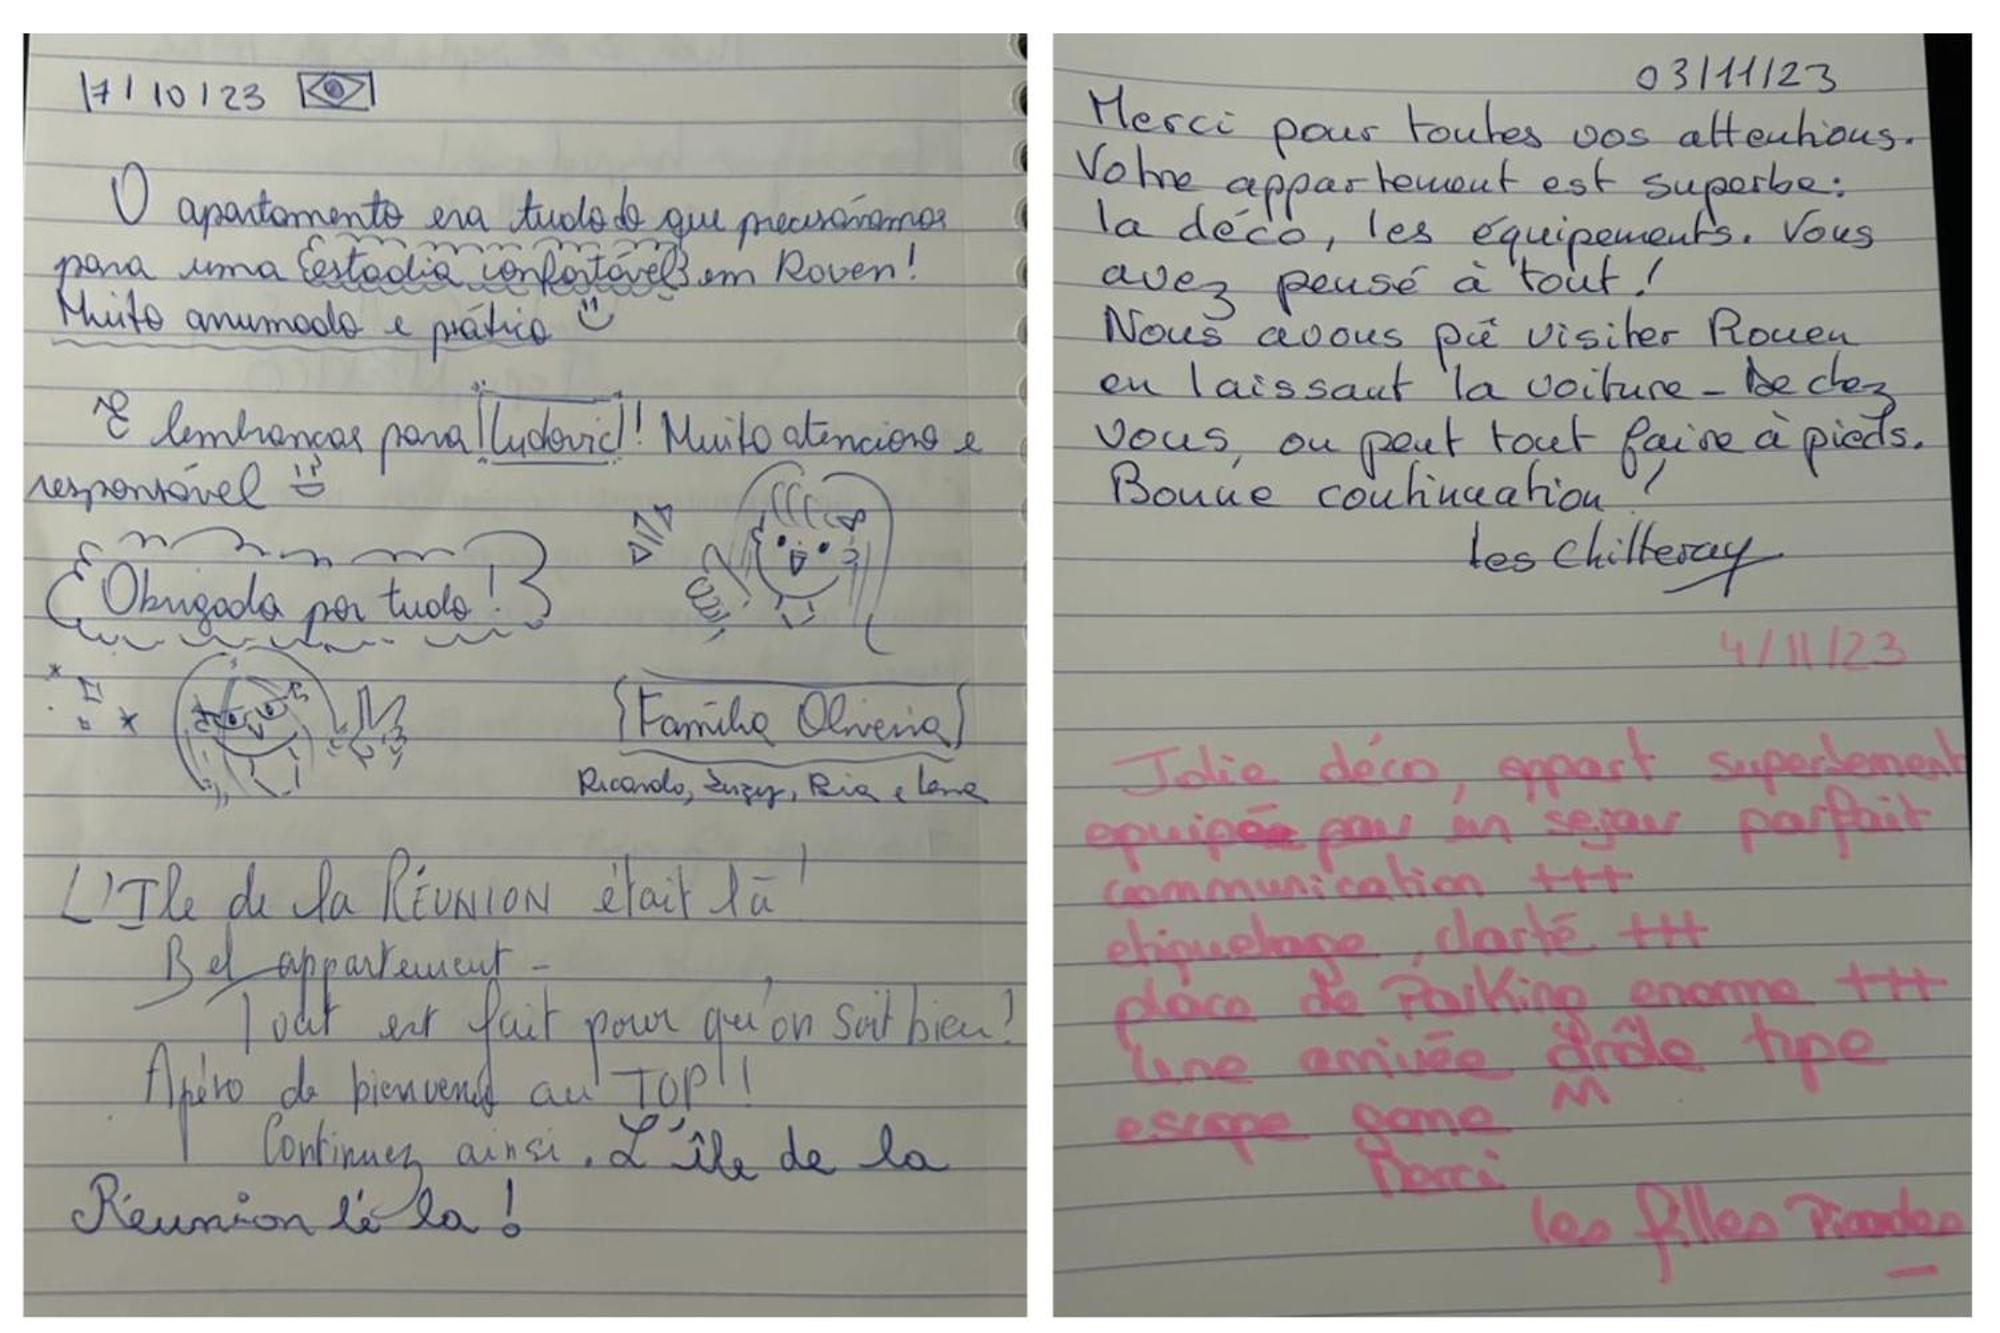 17/10/23
O apartamento era tudo do que precisávamos
para uma estadia confortável em Rouen!
Muito arrumado e prático
E lembranças para Ludovic! Muito atencioso e
responsável
Obrigada por tudo!
Família Oliveira
Ricardo, Suzy, Bia e Lana
L'Ile de la RÉUNION était là!
Bel appartement -
Tout est fait pour qu'on soit bien!
Apéro de bienvenu au TOP!!
Continuez ainsi. L'île de la
Réunion lé la!
03/11/23
Merci pour toutes vos attentions.
Votre appartement est superbe:
la déco, les équipements. Vous
avez pensé à tout!
Nous avons pû visiter Rouen
en laissant la voiture - De chez
vous, on peut tout faire à pieds.
Bonne continuation!
Les
4/11/23
Jolie déco, appart superbement
equipée pour un sejour parfait
communication +++
etiquetage, clarté +++
place de Parking enorme +++
Une arrivée drôle type
escape game ^^
Merci
les filles Picardes